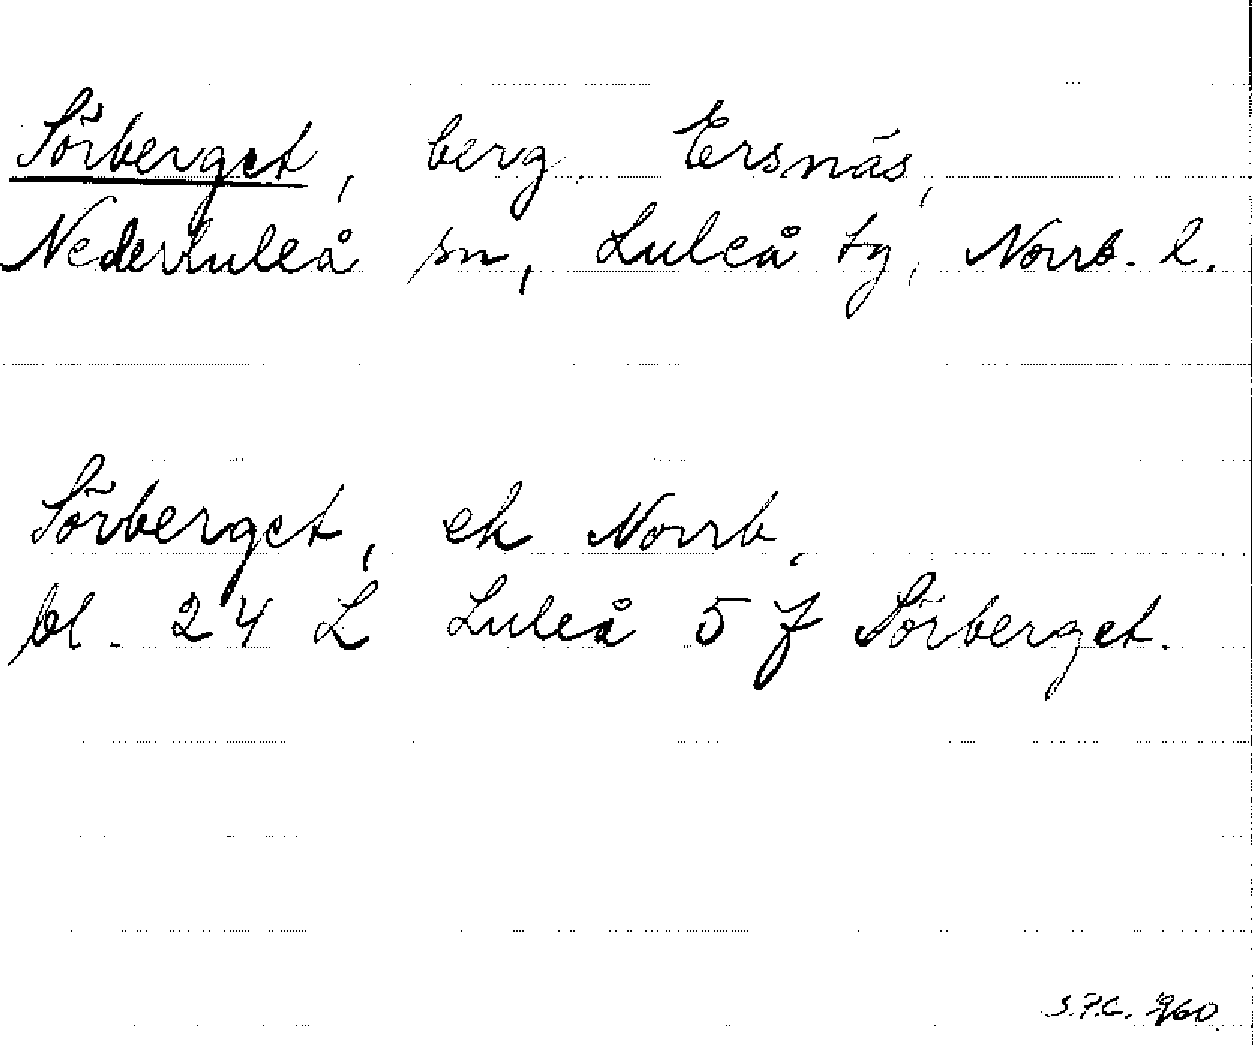 Sörberget, berg. Ersnäs,
Nederluleå sn, Luleå tg, Norrb. l.
Sörberget, ek Norrb,
bl. 24 L Luleå 5 f Sörberget.
960